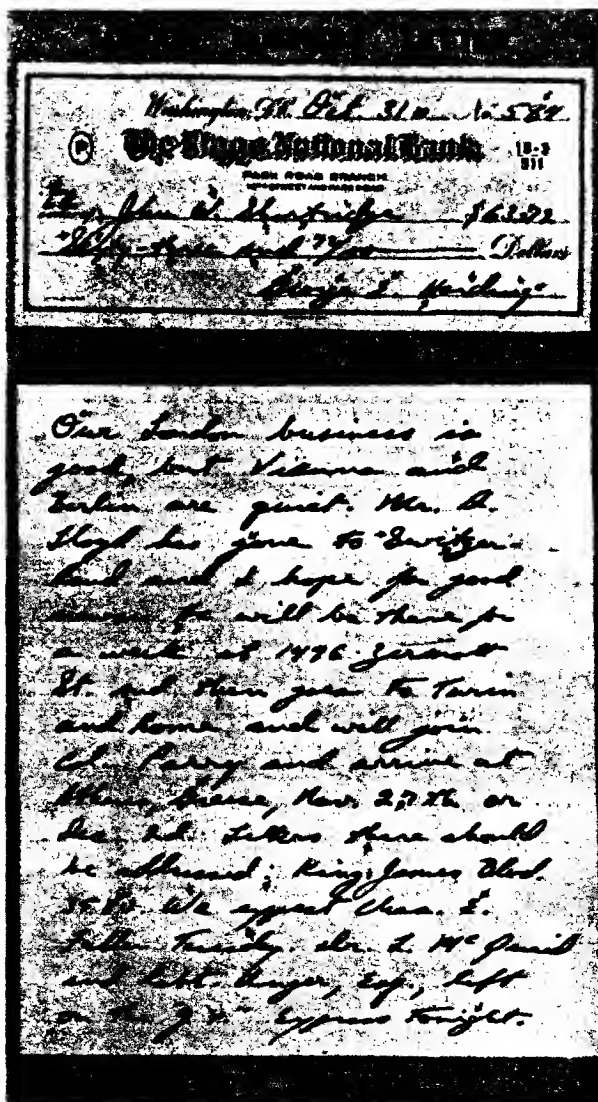 Washington, D.C. Oct. 31 No. 584
The Riggs National Bank
PARK ROAD BRANCH
14TH STREET AND PARK ROAD
John W. $63.72
Sixty-three and 72/100 Dollars
George E. Harding
Our London business is
good, but Vienna and
Berlin are quiet. Mr. D.
Lloyd has gone to Switzer-
land and I hope for good
news. He will be there for
a week at 1496 Zermott
St. and then goes to Turin
and Rome and will join
Col. Parry and arrive at
Athens, Greece, Nov. 27th or
Dec. 2d. Letters there should
be addressed: King James Blvd.
3580. We expect Chas. E.
Fuller Tuesday. Dr. L. McQuaid
and Robt. Unger, Esq., left
on the "Y.X." Express tonight.